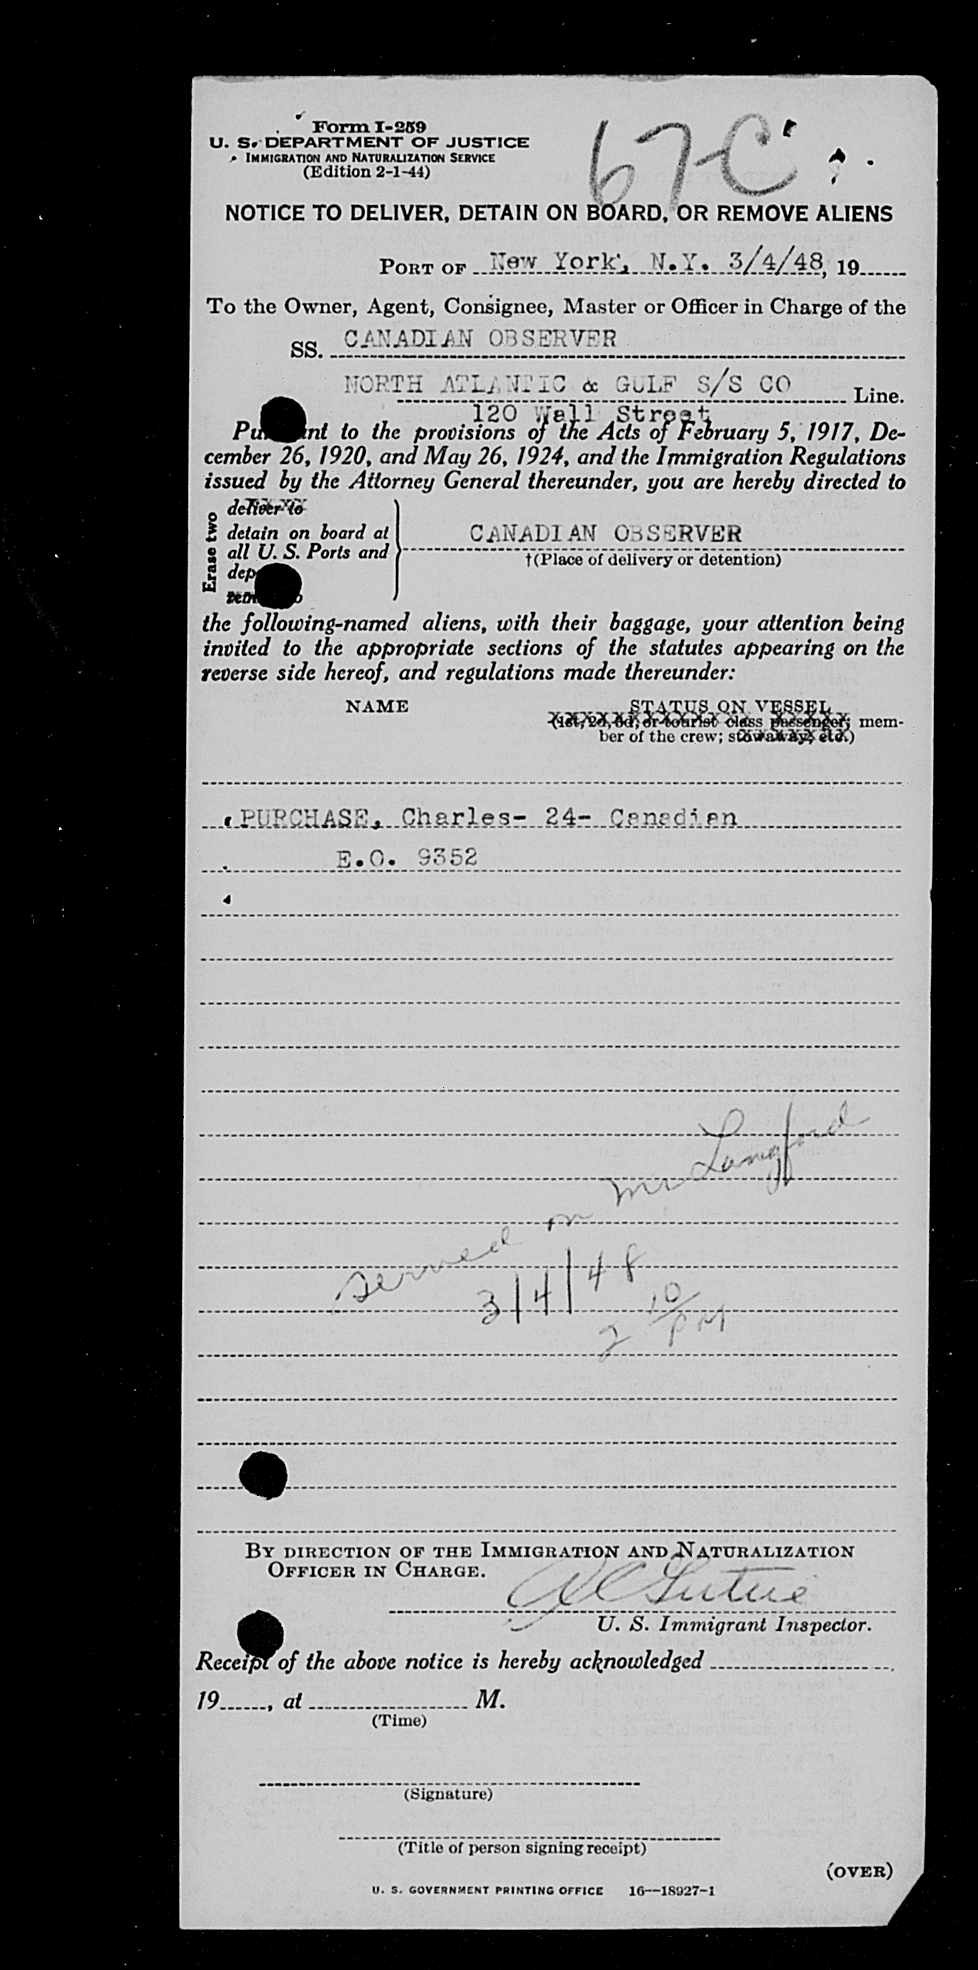 Form I-259
67-C
U. S. DEPARTMENT OF JUSTICE
IMMIGRATION AND NATURALIZATION SERVICE
(Edition 2-1-44)
NOTICE TO DELIVER, DETAIN ON BOARD, OR REMOVE ALIENS
PORT OF New York, N.Y. 3/4/48, 19
To the Owner, Agent, Consignee, Master or Officer in Charge of the
SS. CANADIAN OBSERVER
NORTH ATLANTIC & GULF S/S CO Line.
120 Wall Street
Pursuant to the provisions of the Acts of February 5, 1917, De-
cember 26, 1920, and May 26, 1924, and the Immigration Regulations
issued by the Attorney General thereunder, you are hereby directed to
Erase two
deliver to
detain on board at
all U. S. Ports and
CANADIAN OBSERVER
†(Place of delivery or detention)
the following-named aliens, with their baggage, your attention being
invited to the appropriate sections of the statutes appearing on the
reverse side hereof, and regulations made thereunder:
NAME STATUS ON VESSEL
(1st, 2d, 3d, or tourist class passenger; mem-
ber of the crew; stowaway; etc.)
PURCHASE, Charles- 24- Canadian
E.O. 9352
served on Mr Langford
3/4/48
2 10/PM
BY DIRECTION OF THE IMMIGRATION AND NATURALIZATION
OFFICER IN CHARGE.
U. S. Immigrant Inspector.
Receipt of the above notice is hereby acknowledged
19, at M.
(Time)
(Signature)
(Title of person signing receipt)
(OVER)
U. S. GOVERNMENT PRINTING OFFICE 16—18927-1